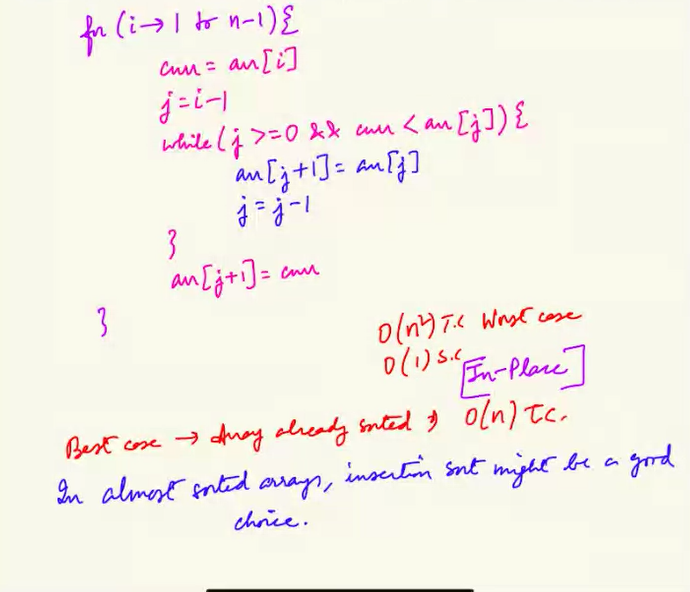 for (i→ 1 to n-1){
curr = arr[i]
j=i-1
while(j >=0 && curr < arr[j]){
arr[j+1]= arr[j]
j = j-1
}
arr[j+1]= curr
}
O(n²) T.C Worst case
O(1) S.C
[In-Place]
Best case → Array already sorted → O(n) T.C.
In almost sorted arrays, insertion sort might be a good
choice.